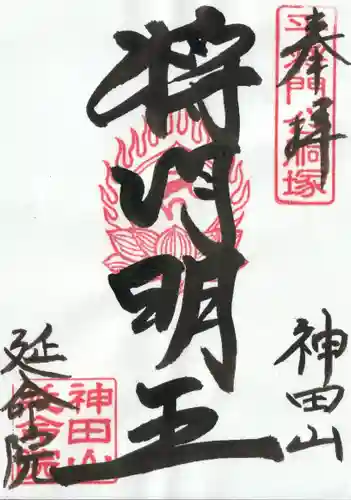 奉拝
平将門胴塚
神田山
将門明王
延命院
神田山
延命院